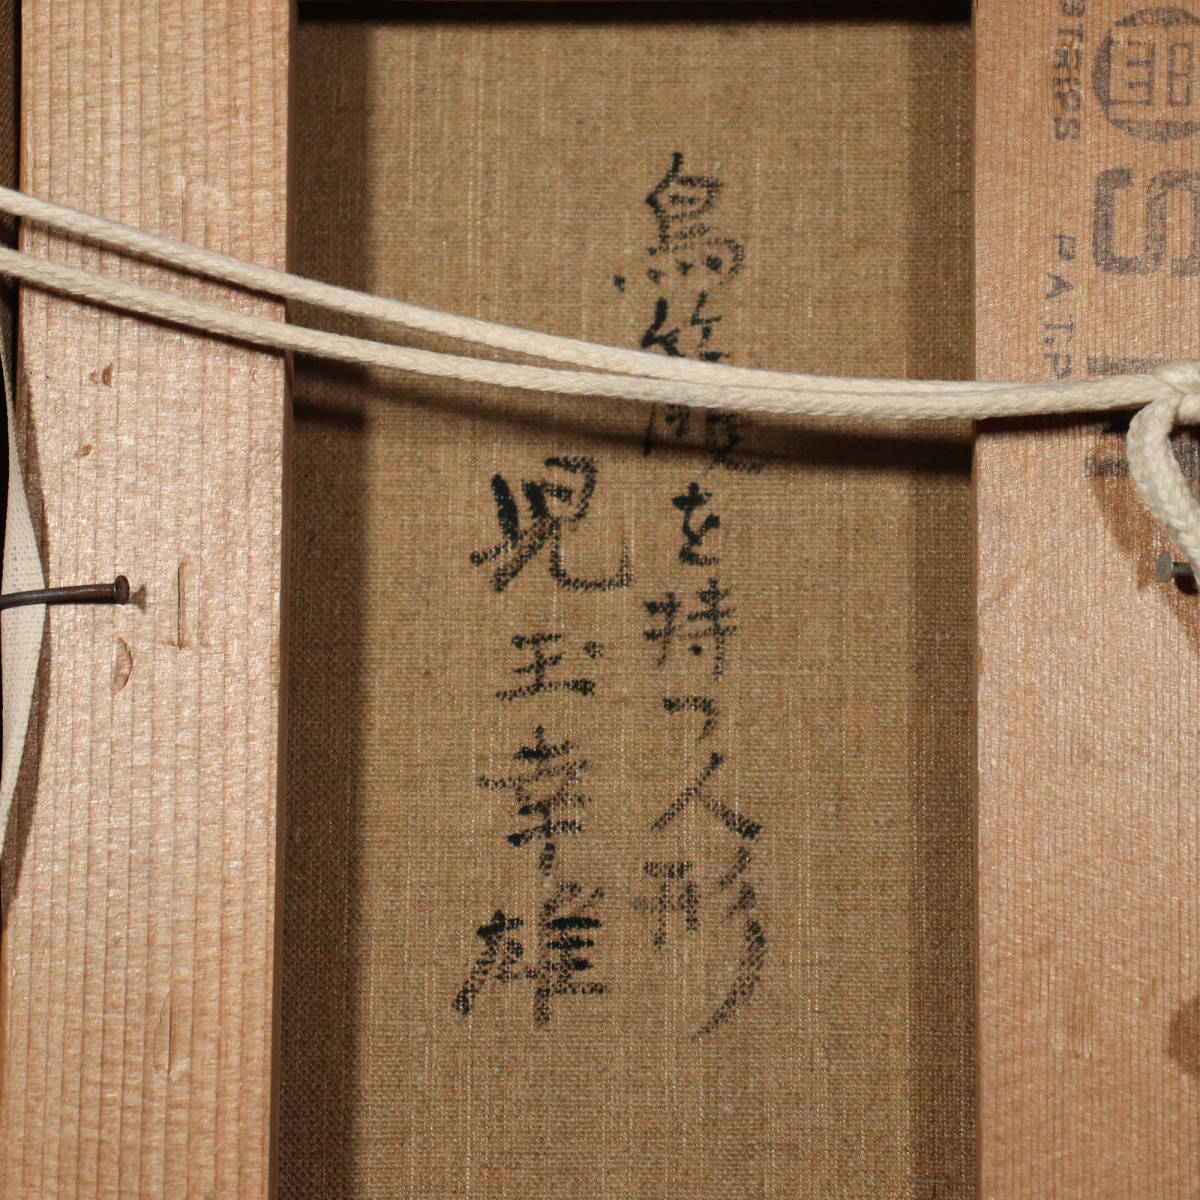 鳥籠を持つ人形
児玉幸雄
STRIPS
S
PAT.P